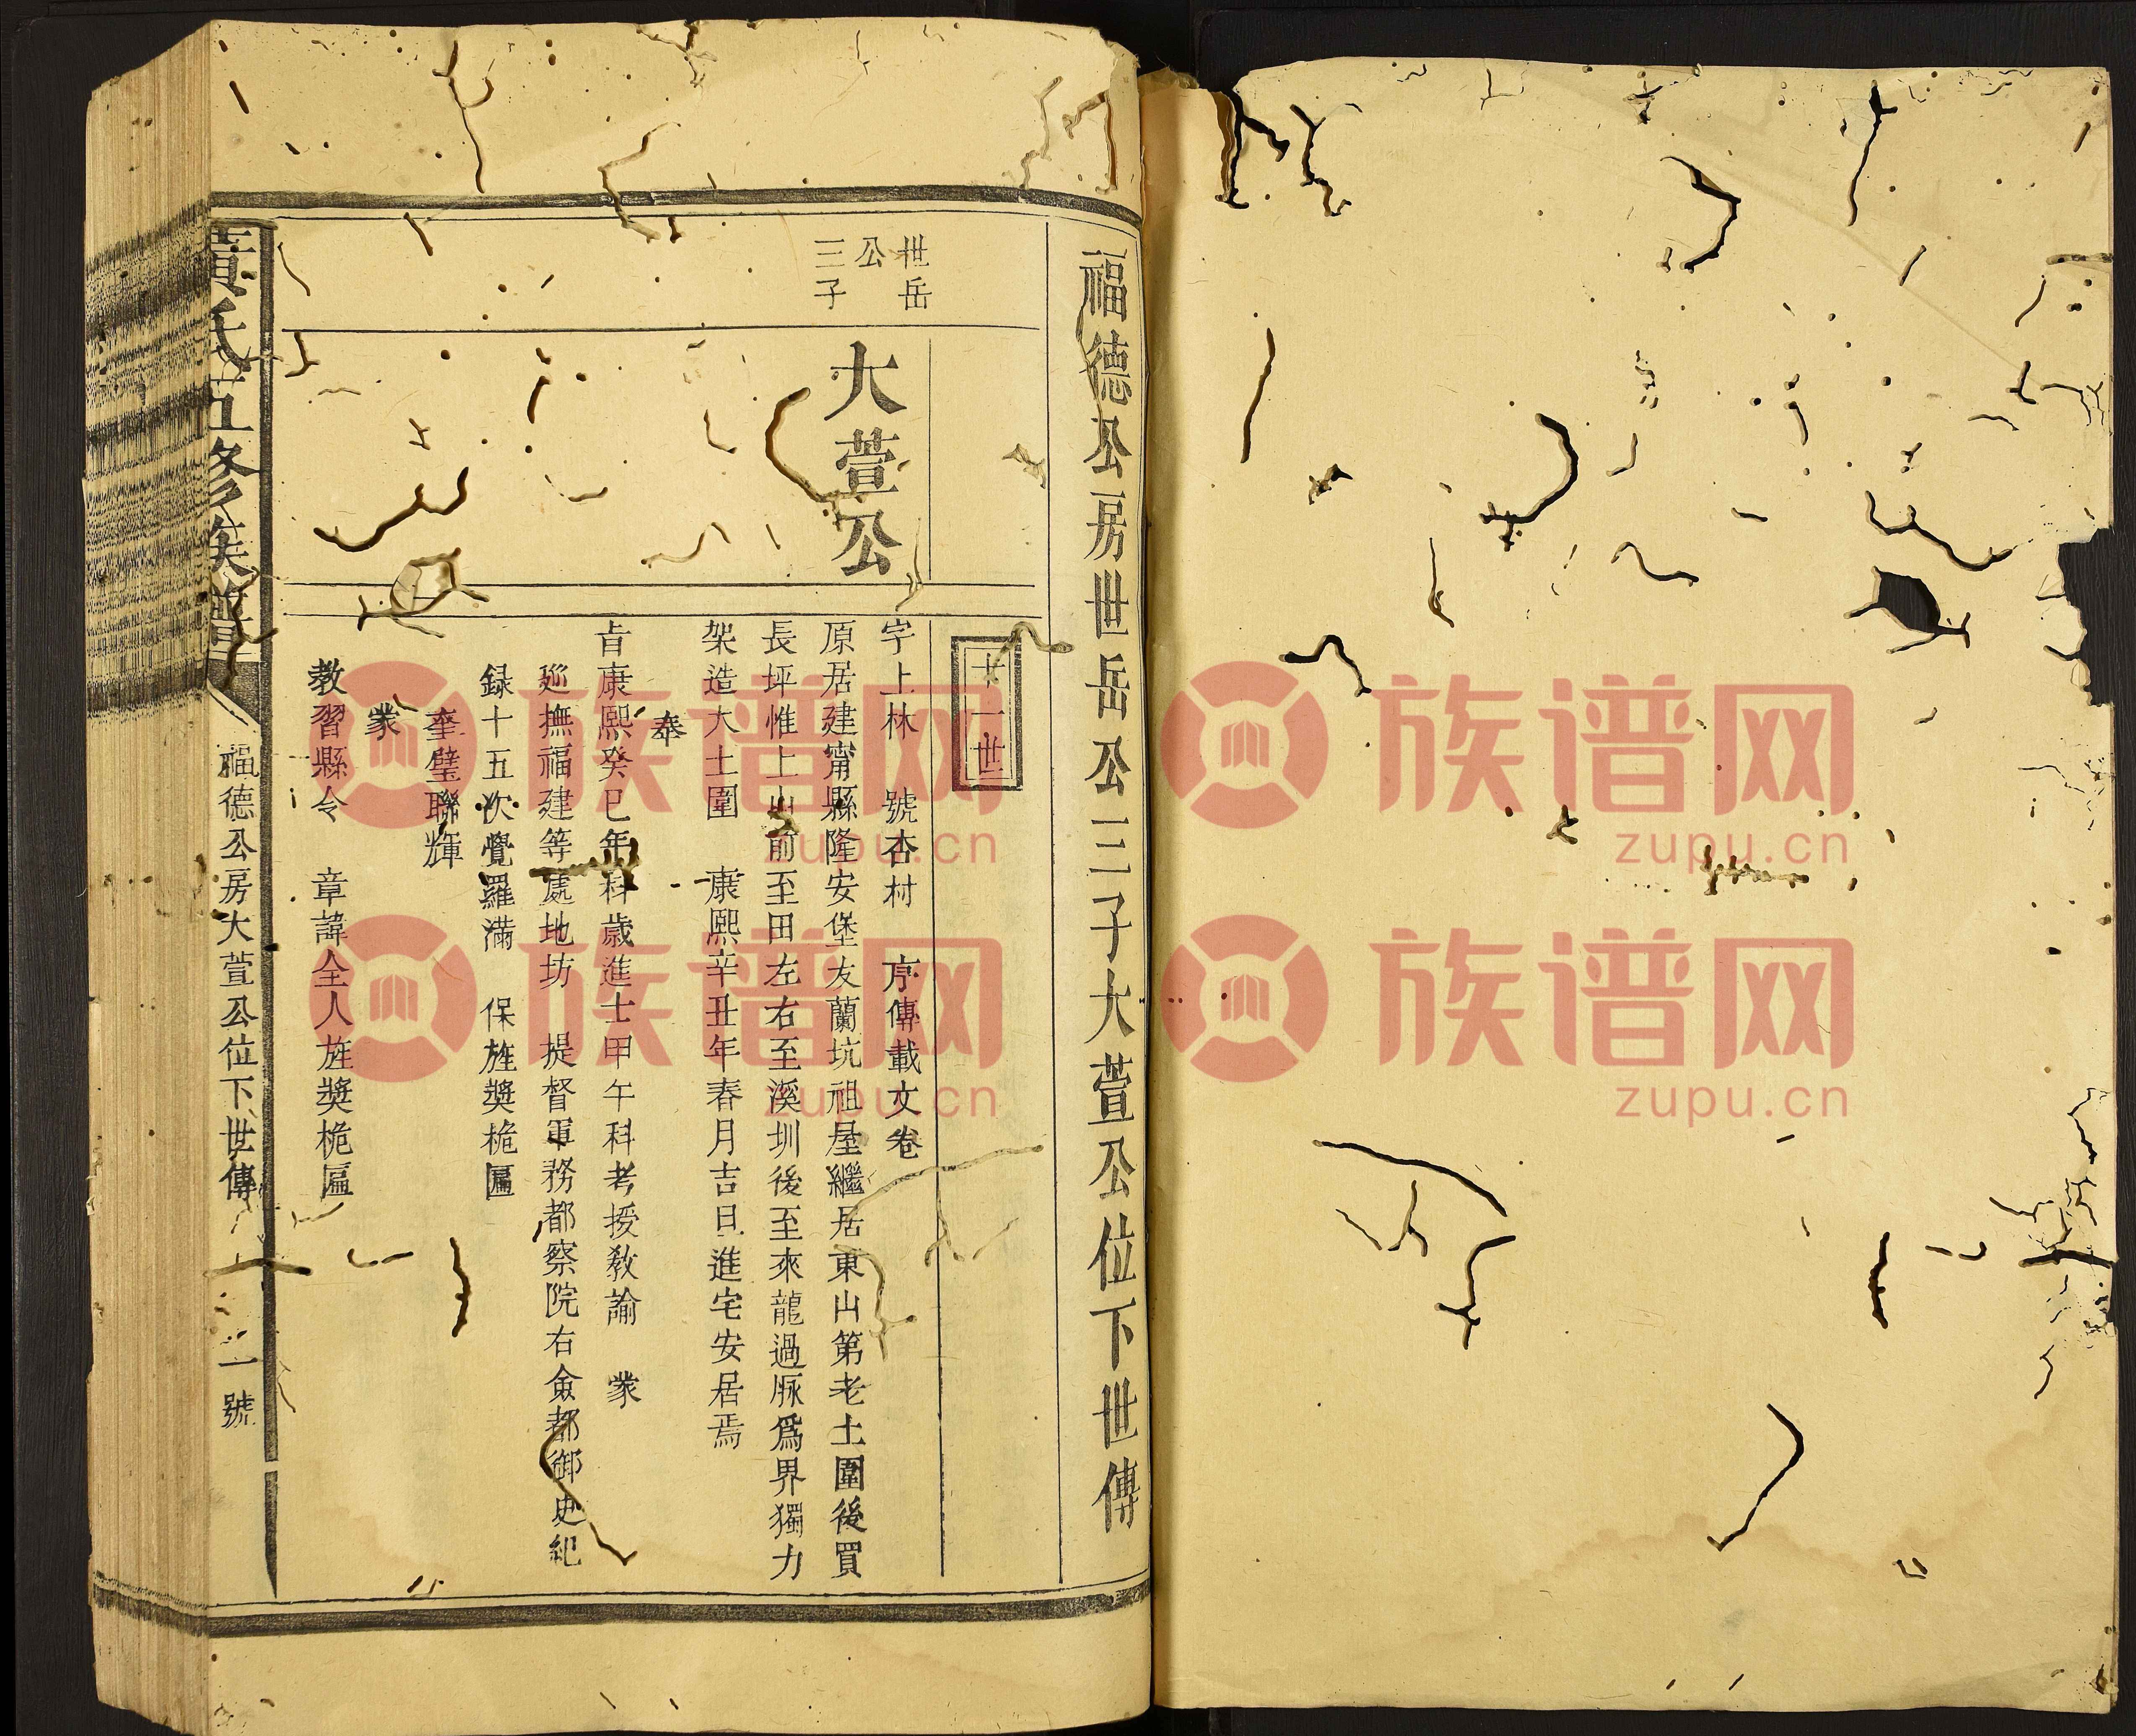 福德公房世岳公三子大萱公位下世傳
十一世
世岳
公
三子
大萱公
字上林　號杏村　序傳載文卷
原居建甯縣隆安堡友蘭坑祖屋繼居東山第老土圍後買
長坪惟上山前至田左右至溪圳後至來龍過脈爲界獨力
架造大土圍　康熙辛丑年春月吉旦進宅安居焉
奉
旨康熙癸巳年科歲進士甲午科考授教諭　蒙
廵撫福建等處地坊　提督軍務都察院右僉都御史紀
録十五次覺羅滿　保旌奬桅匾
奎璧聯輝
蒙
教習縣令　章諱全人旌奬桅匾
黃氏五修族譜
福德公房大萱公位下世傳
一號
族谱网
zupu.cn
族谱网
zupu.cn
族谱网
zupu.cn
族谱网
zupu.cn